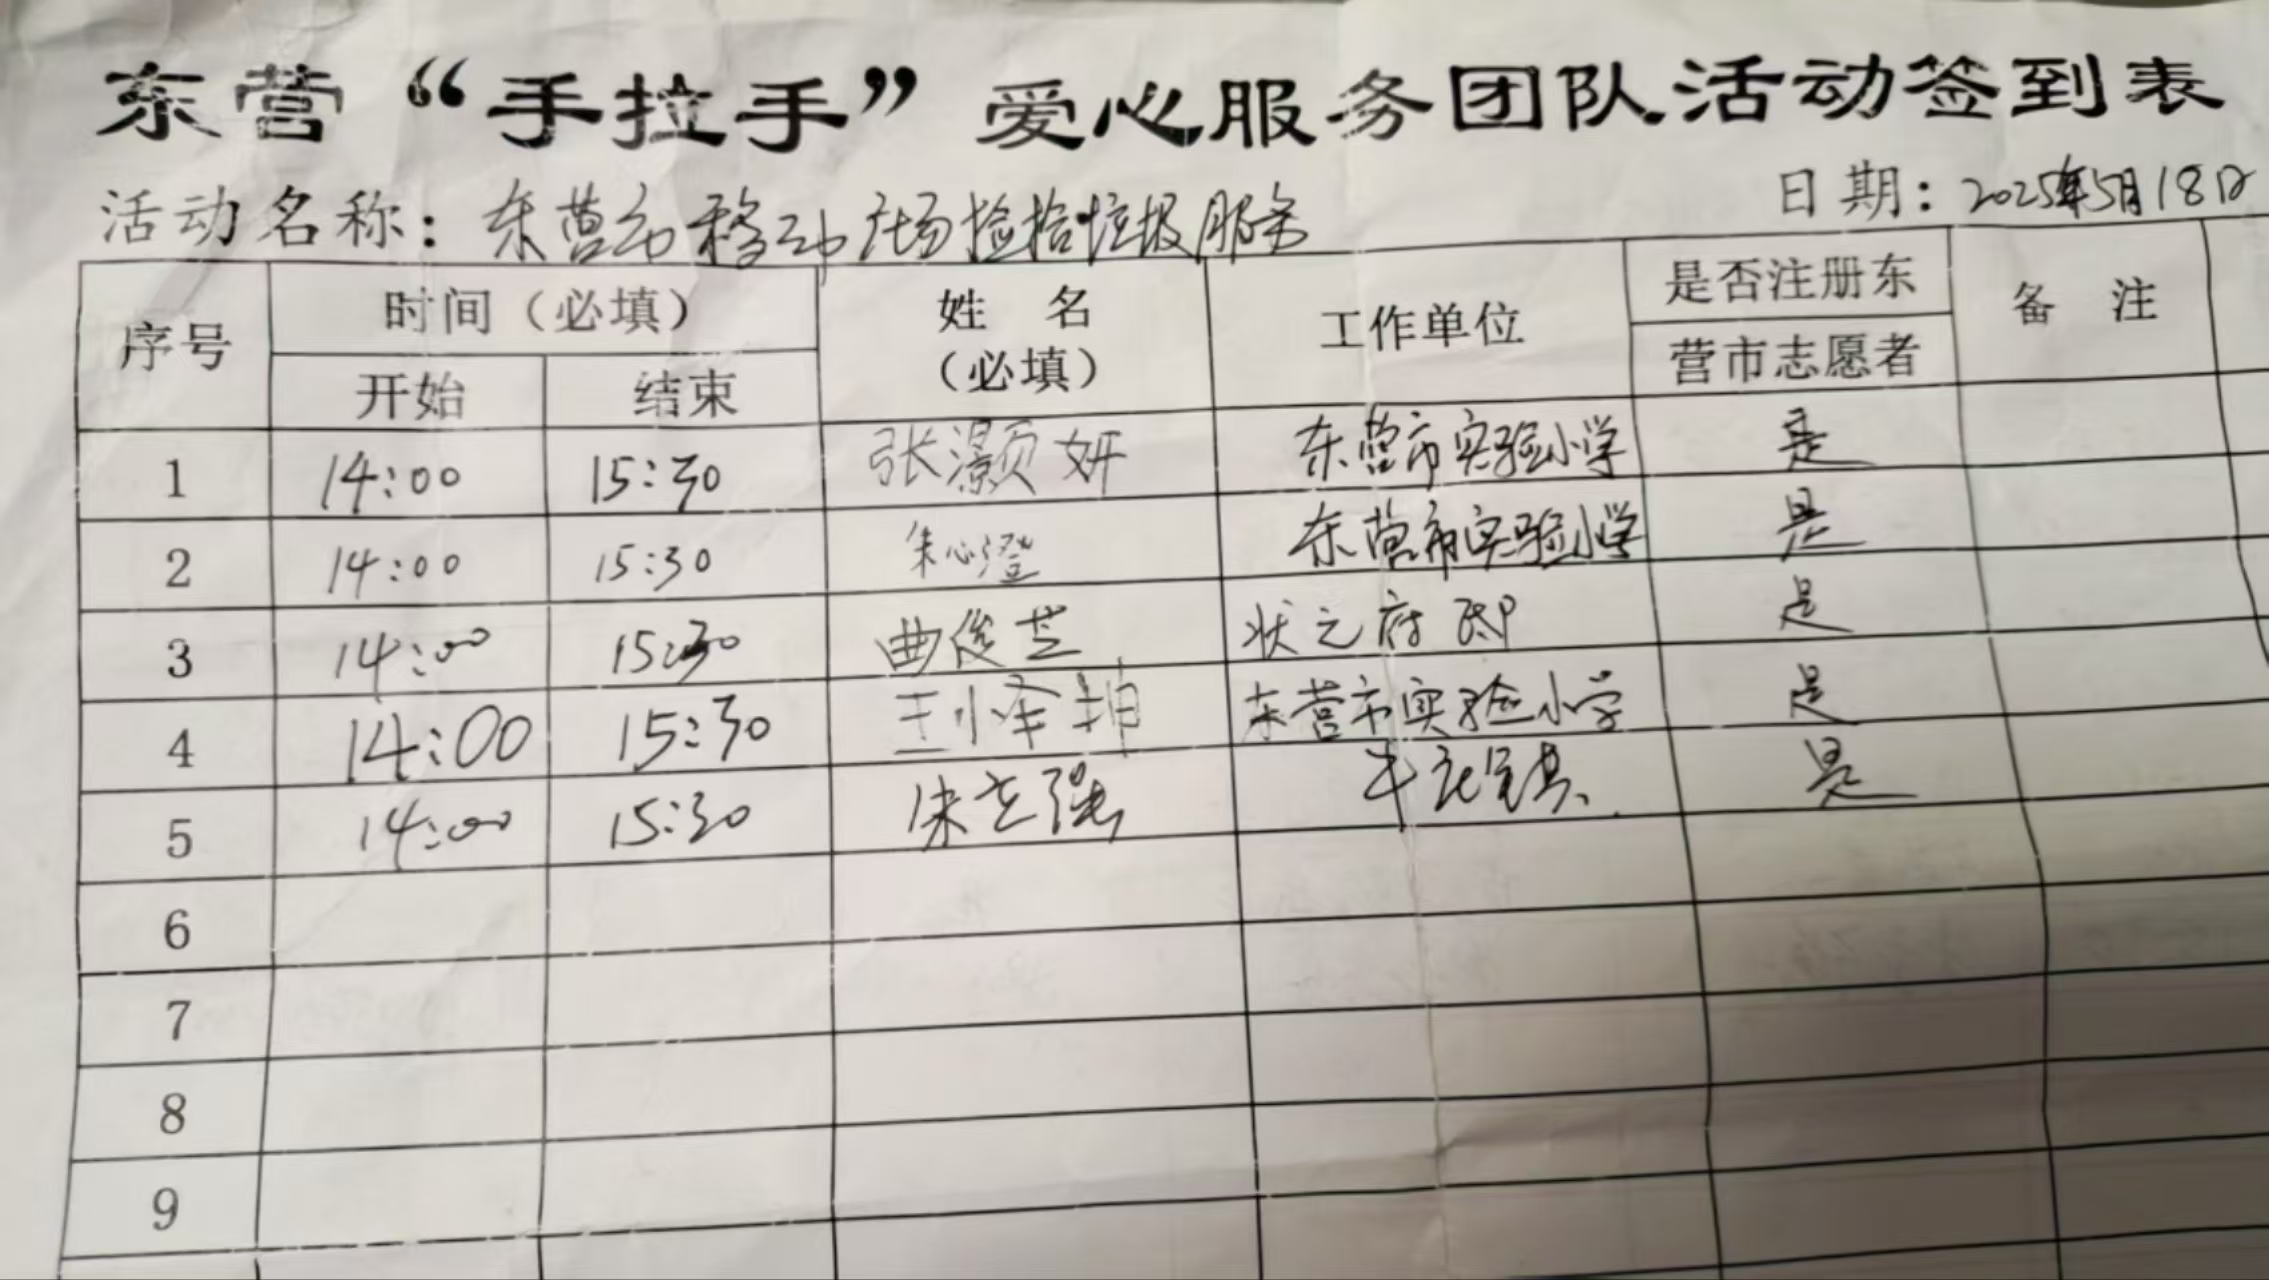 东营“手拉手”爱心服务团队活动签到表
活动名称：东营市移动广场捡拾垃圾服务 日期：2025年5月18日
序号 时间（必填） 姓名（必填） 工作单位 是否注册东营市志愿者 备注
开始 结束
1 14:00 15:30 张灏妍 东营市实验小学 是
2 14:00 15:30 朱心澄 东营市实验小学 是
3 14:00 15:30 曲俊芝 状元府邸 是
4 14:00 15:30 王 东营市实验小学 是
5 14:00 15:30 强 牛庄镇 是
6
7
8
9